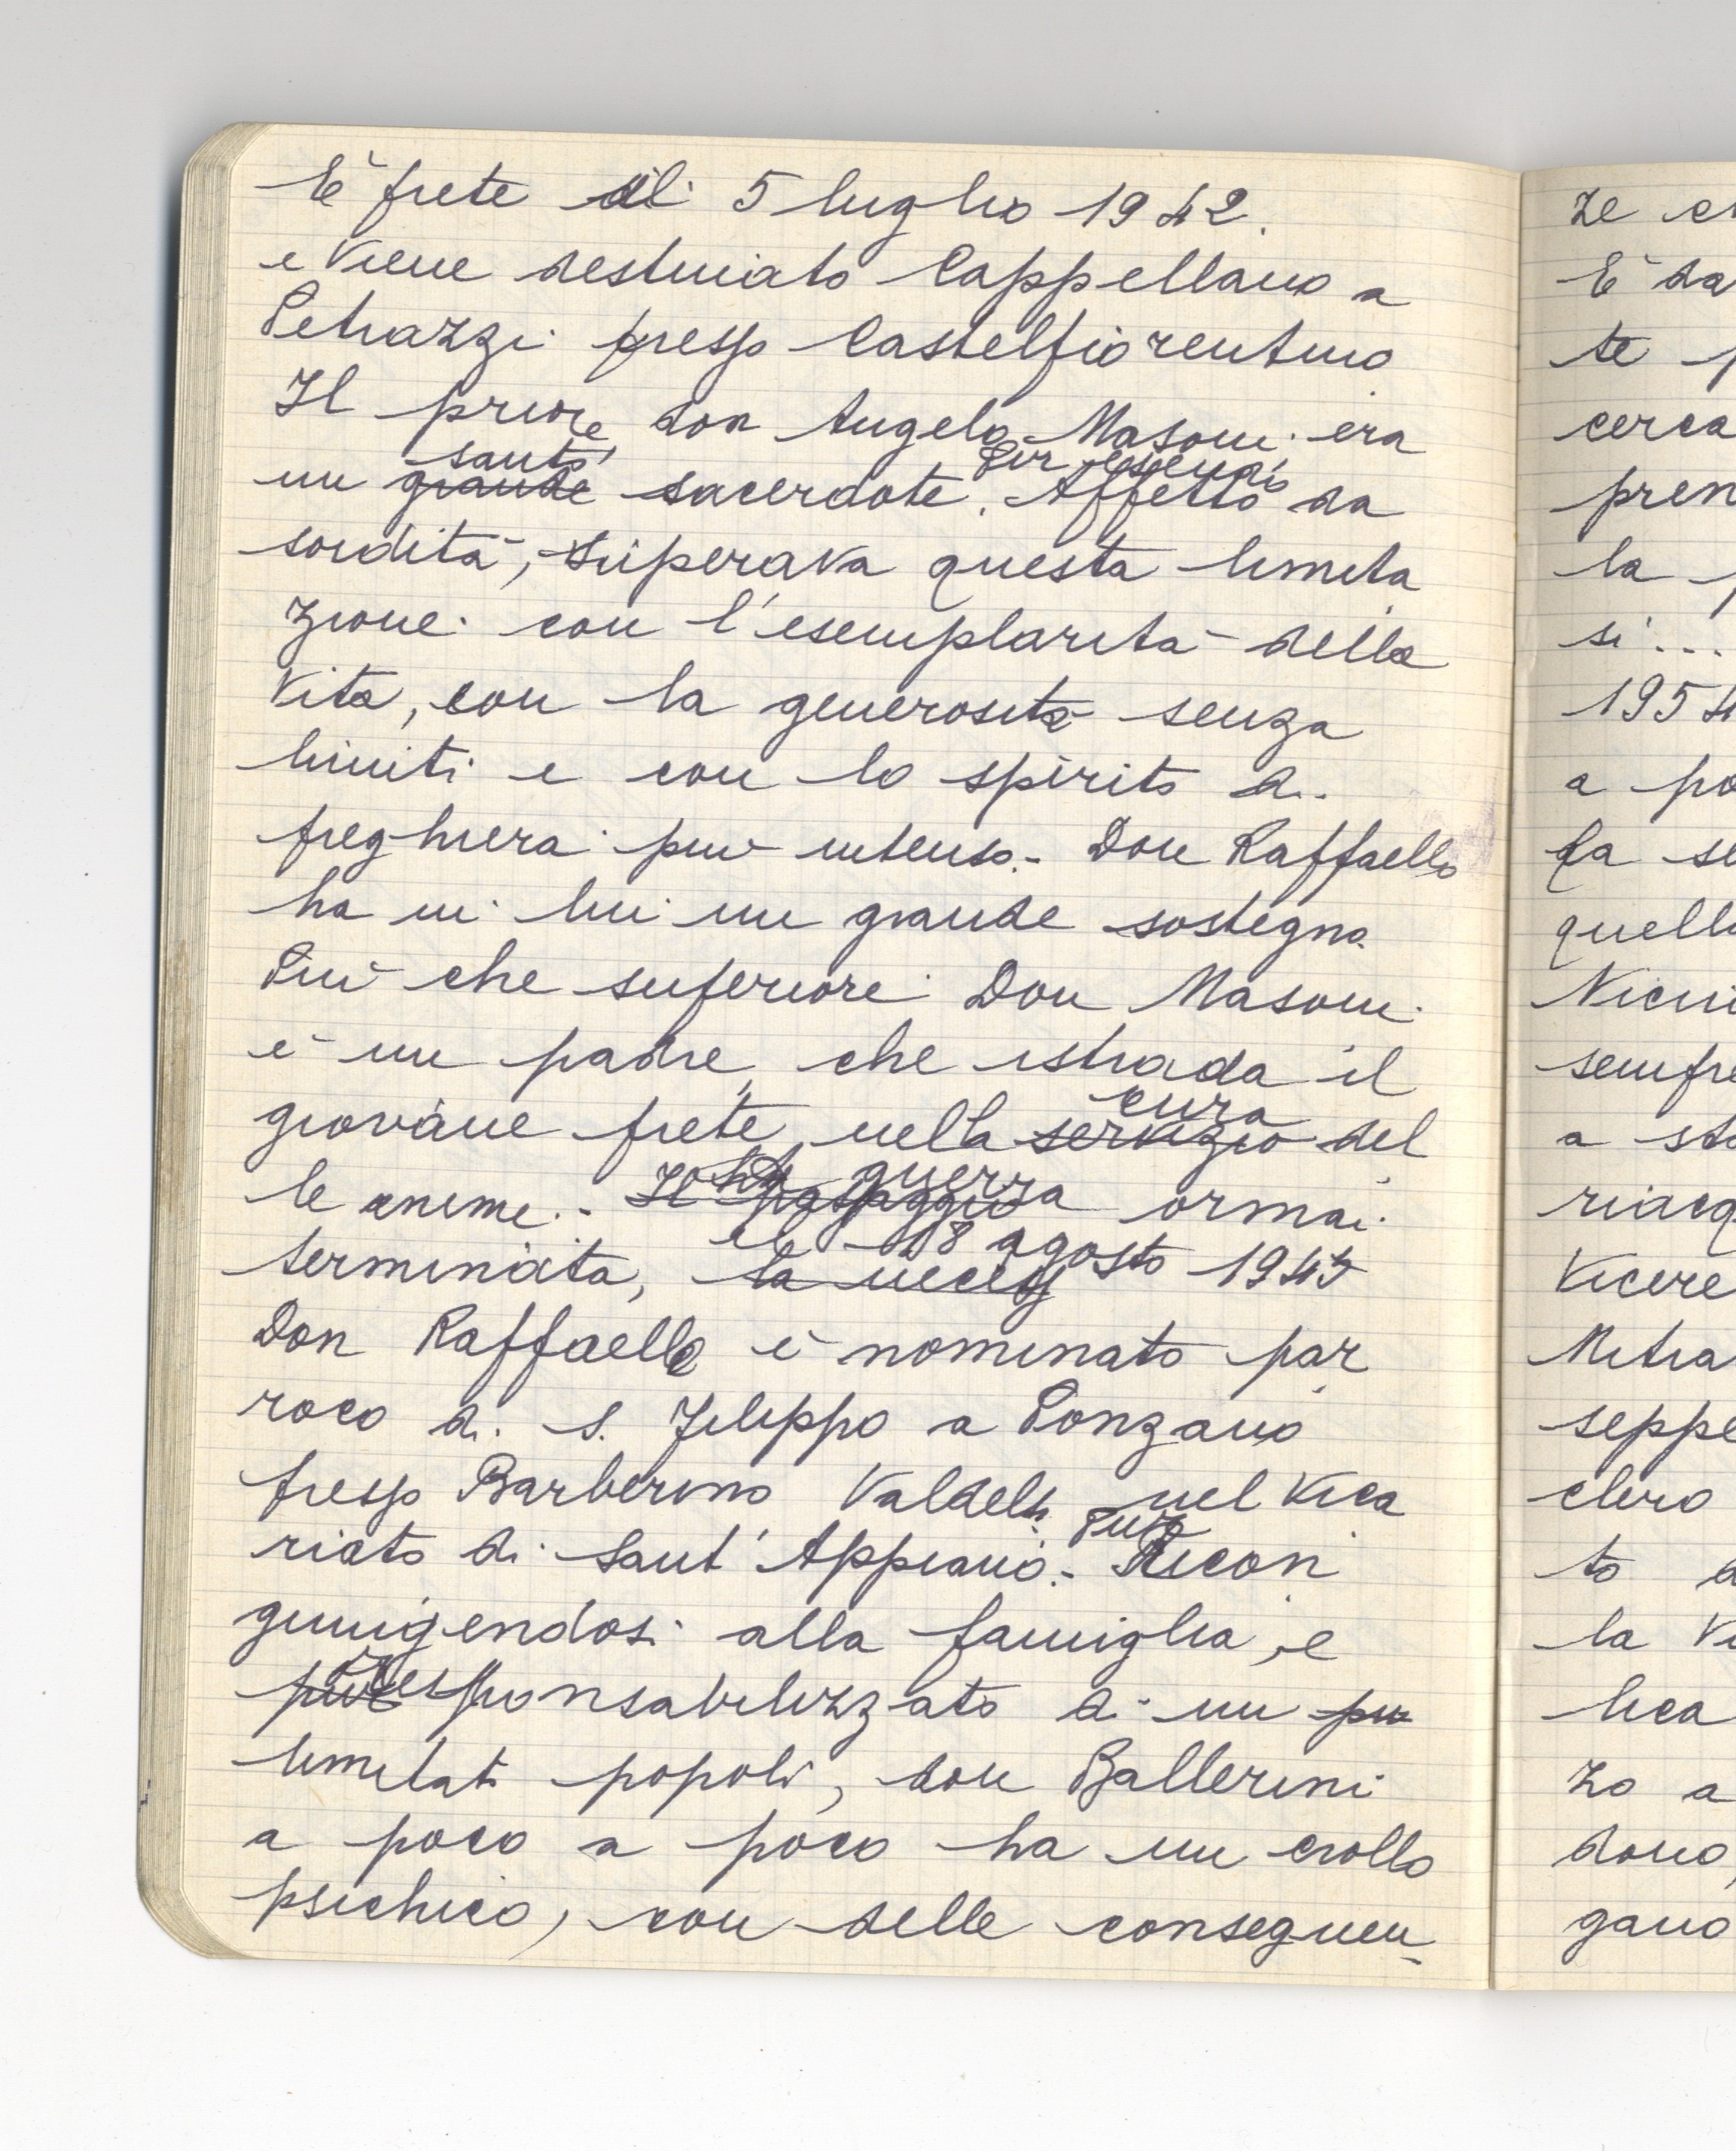 È prete il 5 luglio 1942.
e viene destinato Cappellano a
Petrazzi presso Castelfiorentino
Il priore don Angelo Masoni era
santo Pur essendo
un grande sacerdote. Affetto da
sordità, superava questa limita
zione con l'esemplarità della
vita, con la generosità senza
limiti e con lo spirito di
preghiera più intenso. Don Raffaello
ha in lui un grande sostegno.
Più che superiore Don Masoni
è un padre, che istrada il
cura
giovane prete nella servizio del
guerra
le anime. - Il passaggio ormai
il 18 agosto 1945
terminata, la necess
Don Raffaello è nominato par
roco di S. Filippo a Ponzano
presso Barberino Valdelsa nel Vica
Pur
riato di Sant'Appiano. - Ricon
giungendosi alla famiglia, e
più responsabilizzato di un pic
limitat popolo, don Ballerini
a poco a poco ha un crollo
psichico, con delle conseguen-
ze
È da
te
cerca
pren
la
si...
1954
a po
fa se
quell
a sta
riacq
Vicere
seppe
clero
to
la Vi
lica
zo a
dono,
gano